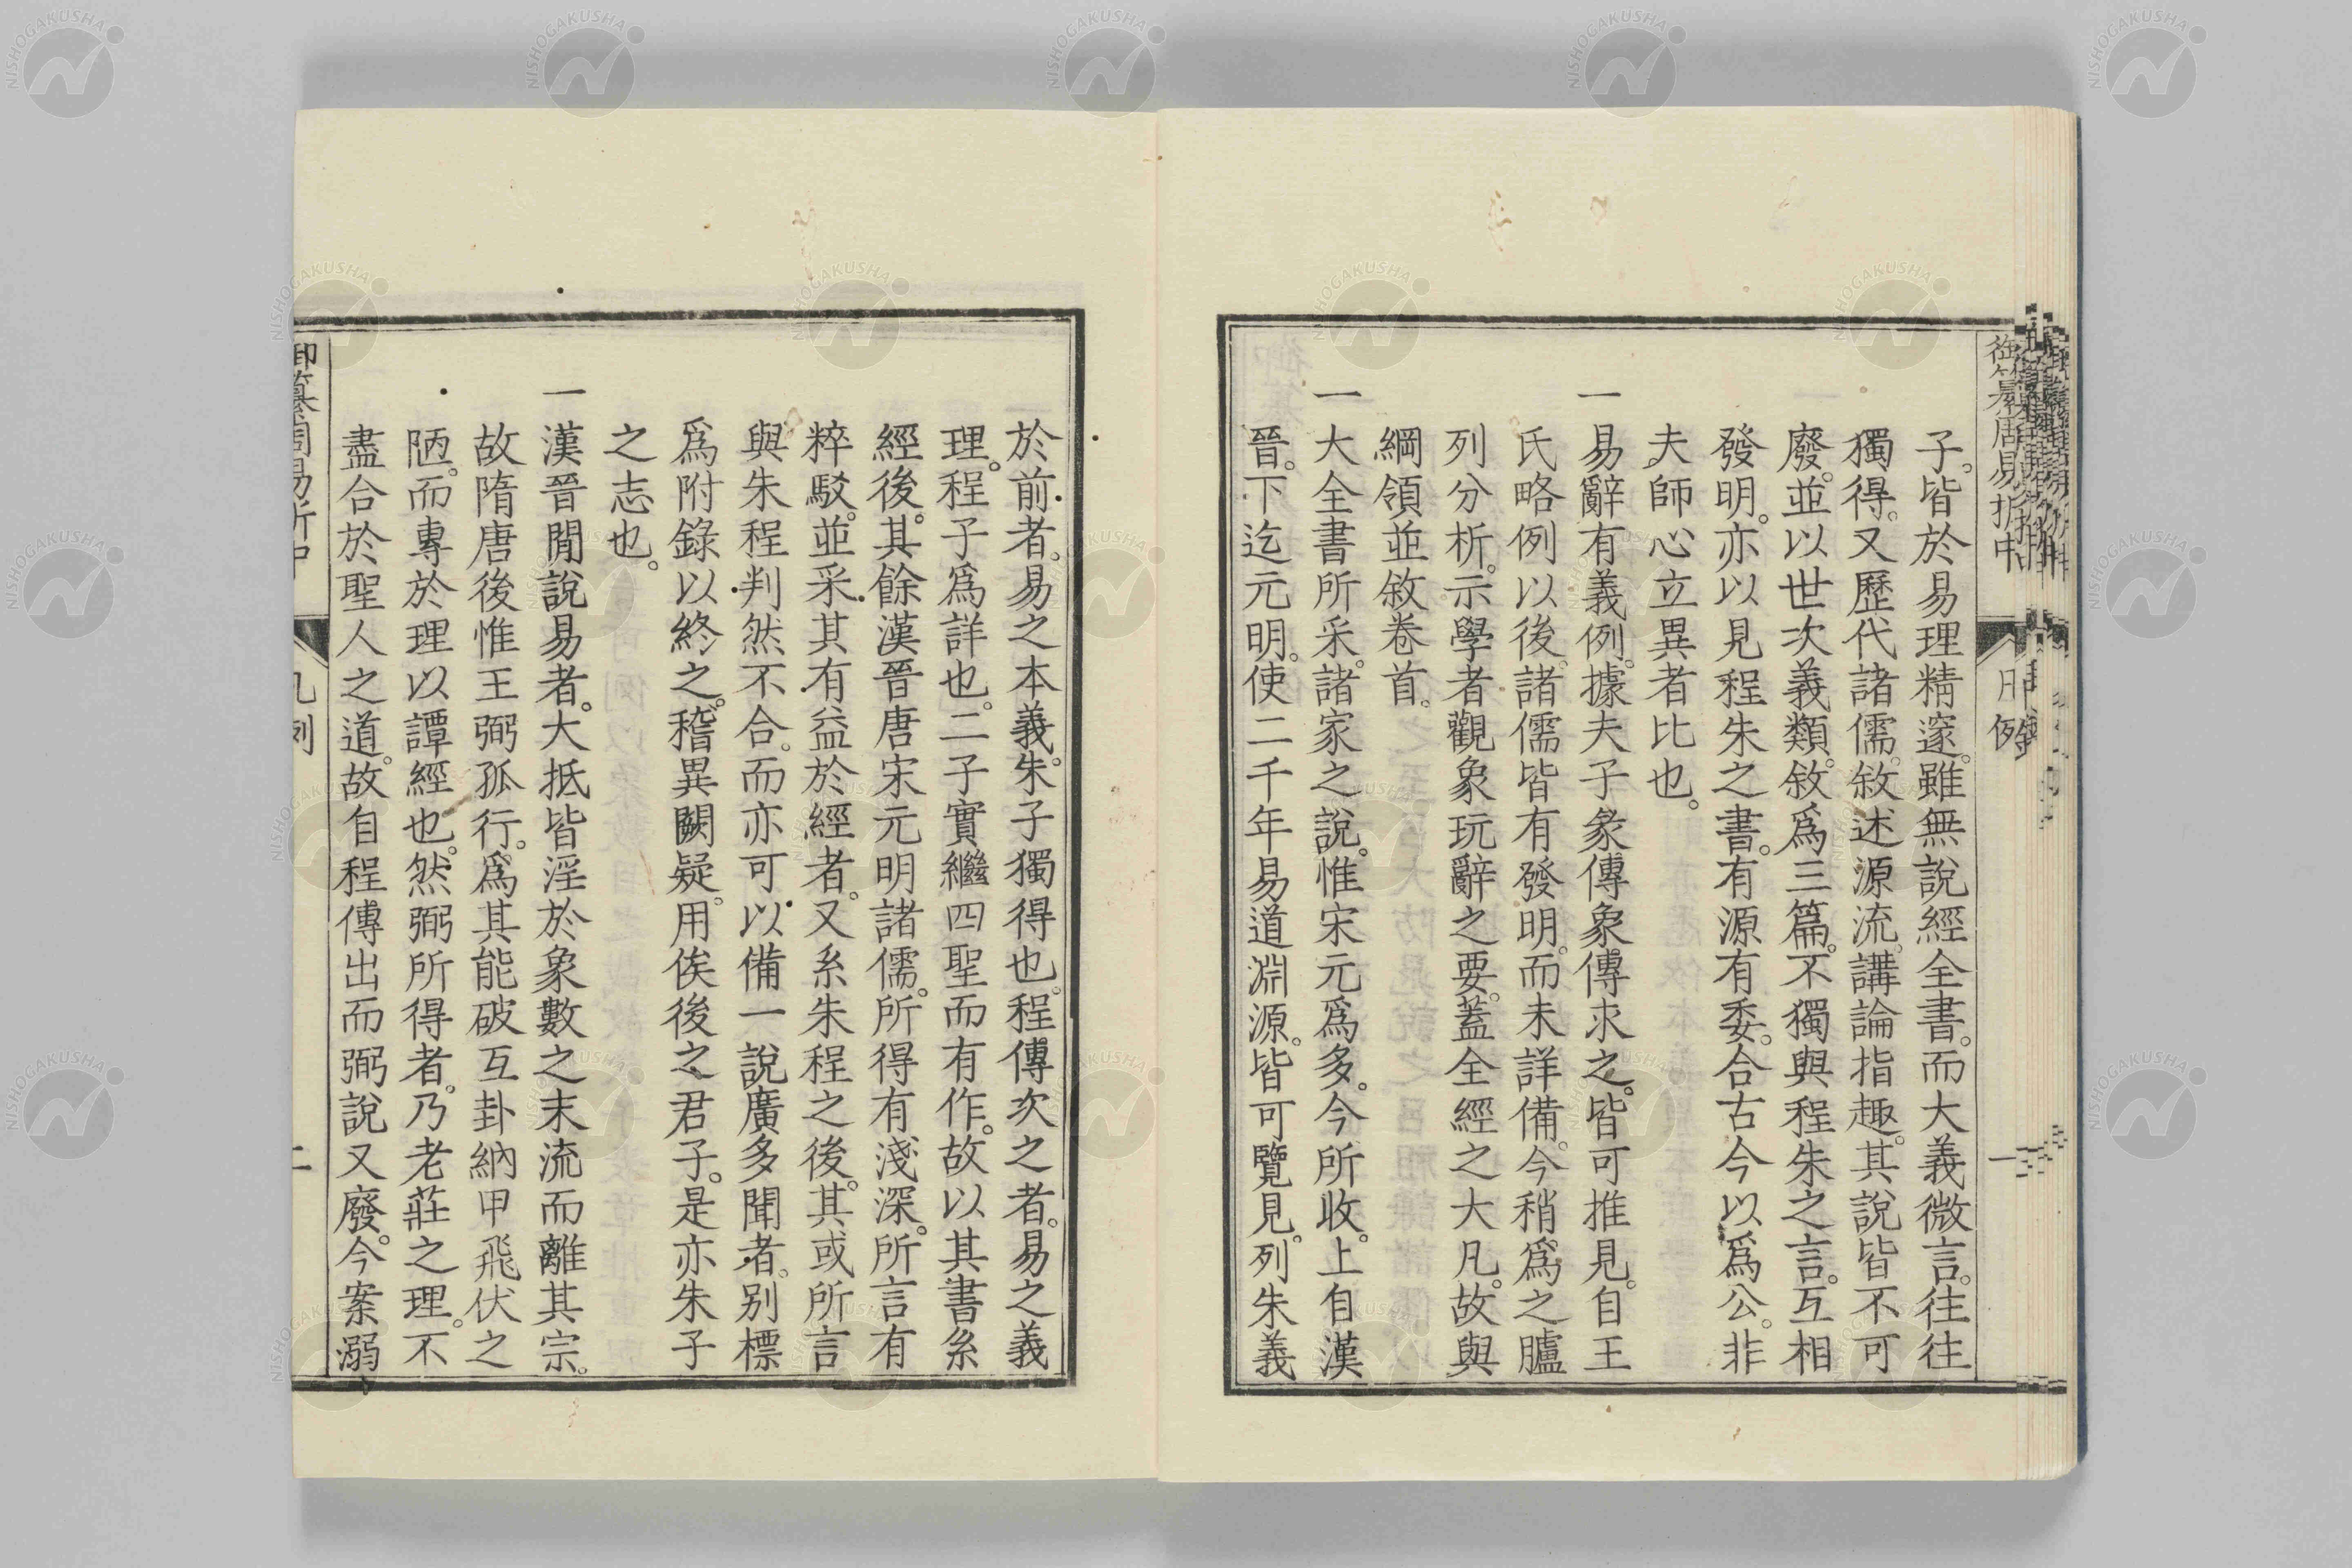 子。皆於易理精邃。雖無說經全書。而大義微言。往往
獨得。又歷代諸儒。敘述源流。講論指趣。其說皆不可
廢。並以世次義類。敘爲三篇。不獨與程朱之言。互相
發明。亦以見程朱之書。有源有委。合古今以爲公。非
夫師心立異者比也。
一易辭有義例。據夫子彖傳象傳求之。皆可推見。自王
氏略例以後。諸儒皆有發明。而未詳備。今稍爲之臚
列分析。示學者觀象玩辭之要。蓋全經之大凡。故與
綱領並敘卷首。
一大全書所采。諸家之說。惟宋元爲多。今所收。上自漢
晉。下迄元明。使二千年易道淵源。皆可覽見。列朱義
於前者。易之本義。朱子獨得也。程傳次之者。易之義
理。程子爲詳也。二子實繼四聖而有作。故以其書系
經後。其餘漢晉唐宋元明諸儒。所得有淺深。所言有
粹駁。並采其有益於經者。又系朱程之後。其或所言
與朱程判然不合。而亦可以備一說廣多聞者。別標
爲附錄以終之。稽異闕疑。用俟後之君子。是亦朱子
之志也。
一漢晉閒說易者。大抵皆淫於象數之末流而離其宗。
故隋唐後惟王弼孤行。爲其能破互卦納甲飛伏之
陋。而專於理以譚經也。然弼所得者。乃老莊之理。不
盡合於聖人之道。故自程傳出而弼說又廢。今案溺
御纂周易折中
凡例
NISHOGAKUSHA